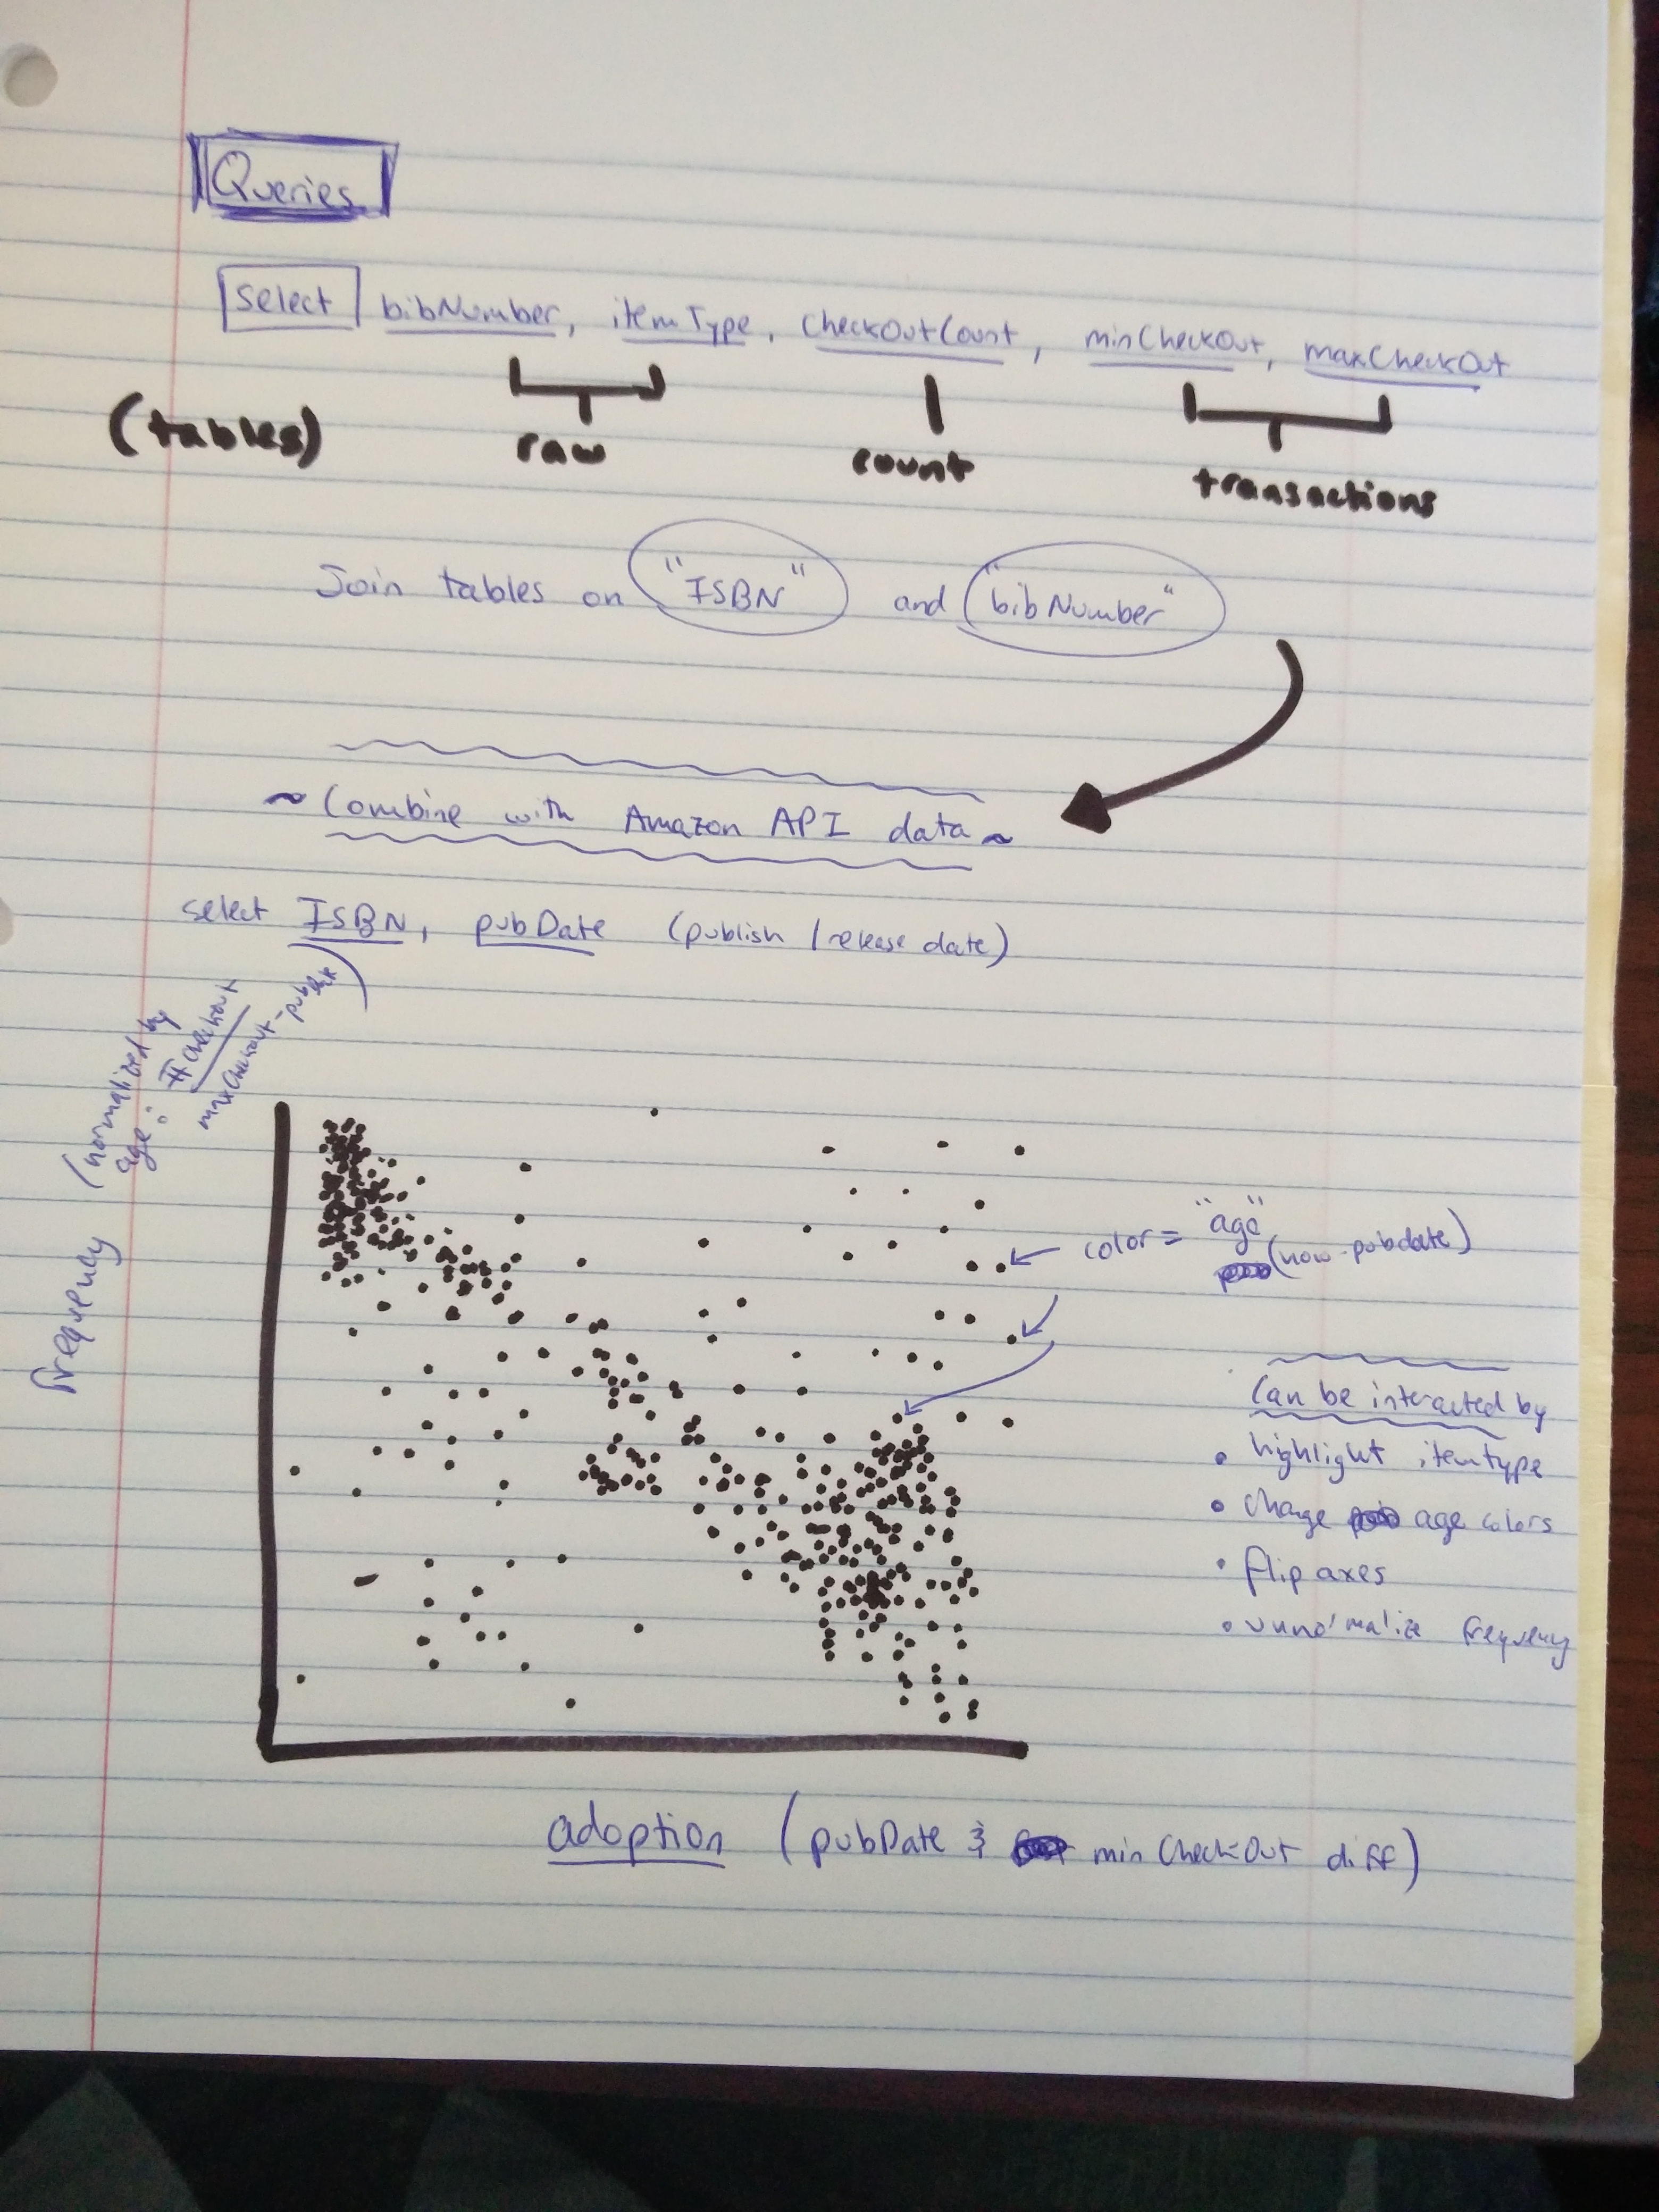 Queries
select bibNumber, itemType, checkOutCount, minCheckOut, maxCheckOut
(tables) raw count transactions
Join tables on "ISBN" and "bibNumber"
~ Combine with Amazon API data ~
select ISBN, pubDate (publish / release date)
frequency (normalized by
age: # checkout
maxCheckout - pubDate)
color = "age"
(now - pubdate)
Can be interacted by
• highlight itemtype
• change age colors
• flip axes
• unnormalize frequency
adoption (pubDate & minCheckOut diff)